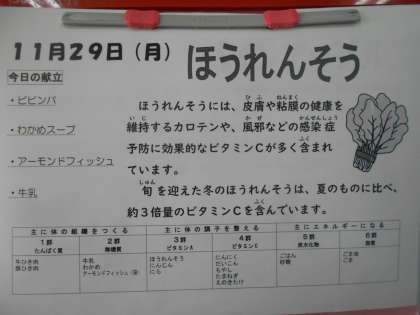 11月29日（月）
ほうれんそう
今日の献立
・ビビンバ
・わかめスープ
・アーモンドフィッシュ
・牛乳
ほうれんそうには、皮膚や粘膜の健康を
維持するカロテンや、風邪などの感染症
予防に効果的なビタミンCが多く含まれ
ています。
旬を迎えた冬のほうれんそうは、夏のものに比べ、
約3倍量のビタミンCを含んでいます。
主に体の組織をつくる 主に体の調子を整える 主にエネルギーになる
1群 2群 3群 4群 5群 6群
たんぱく質 無機質 ビタミンA ビタミンC 炭水化物 脂質
牛ひき肉 牛乳 ほうれんそう にんにく ごはん ごま油
豚ひき肉 わかめ にんじん だいこん 砂糖 ごま
アーモンドフィッシュ にら もやし
たまねぎ
えのきたけ